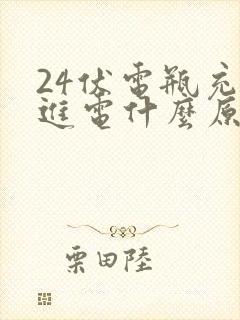 24伏电瓶充
進電什麼原
栗田陸